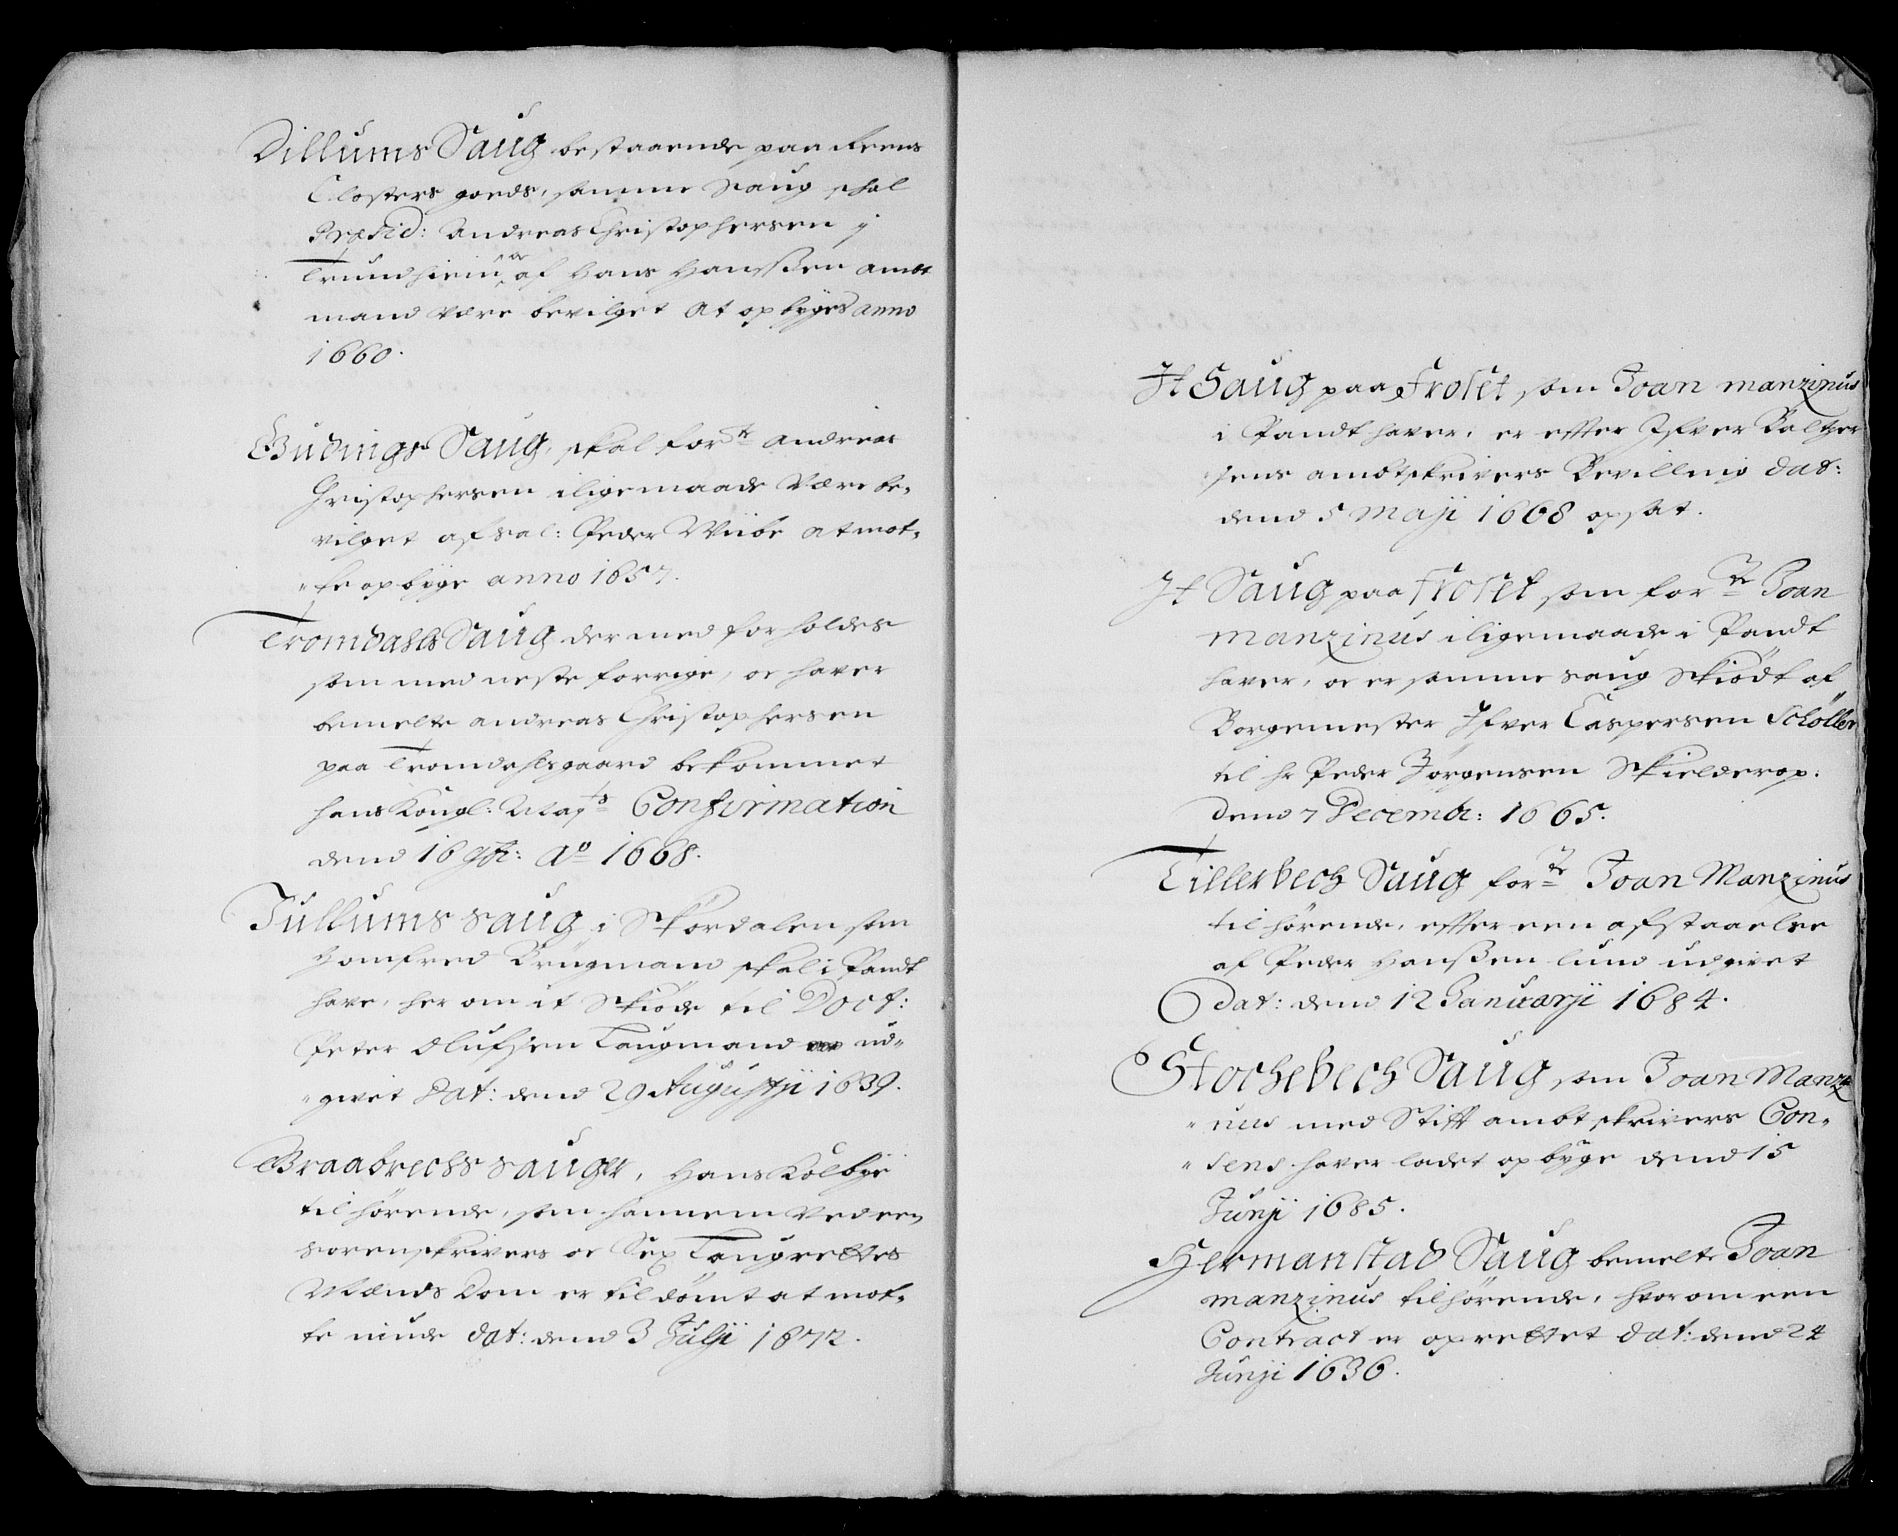 Dillums Saug bestaaende paa Reens
Closters goeds, samme Saug schal
Præsid: Andreas Christophersen y
Trundhiem af Hans Hanssen amt
mand være bevilget at opbyges anno
1660.
Gudings Saug, skal for^te Andreas
Christophersen iligemaade være be„
vilget af Sal: Peder Wiibe at mot„
„te opbyge anno 1657.
Tromdahls Saug der med forholdes
som med neste forrige, oc haver
bemelte Andreas Christophersen
paa Tromdahlsgaard bekommet
hans Kongl: May^ts Confirmation
dend 16 9br: Aº 1668.
Tullums Saug i Skiørdalen som
Homfred Brügmand skal i Pandt
have, her om it Skiøde til Doct:
Peter Olufsen Laugmand ud„
„givet Dat: dend 29 Augustij 1639.
Braabrechs sauger, Hans Kolbye
tilhørende, som hannem ved een
Sorenskrivers oc Sex Laugrettes
Mænds Dom er tildømt at mot„
te niude dat: dend 3 Julij 1672.
It Saug paa Froset som Joan Manzinus
i Pandt haver, er efter Ifver Baltzer
sens amdtskrivers Bevilling dat:
dend 5 Maji 1668 opsat.
It Saug paa Froset som for^te Joan
Manzinus iligemaade i Pandt
haver, oc er samme saug Skiødt af
Borgemester Ifver Caspersen Schøller
til hr Peder Jørgensen Skielderop:
dend 7 Decembr: 1665.
Tillerbech Saug for^te Joan Manzinus
tilhørende, efter een afstaaelse
af Peder Hanssen Lund udgivet
Dat: dend 12 Januarij 1684.
Stochebech Saug som Joan Manzi
„nus med Stift ambtskrivers Con„
„sens haver ladet opbyge dend 15
Junij 1685.
Hermanstad Saug bemelte Joan
Manzinus tilhørende, hvorom een
Contract er oprettet dat: dend 24
Junij 1636.